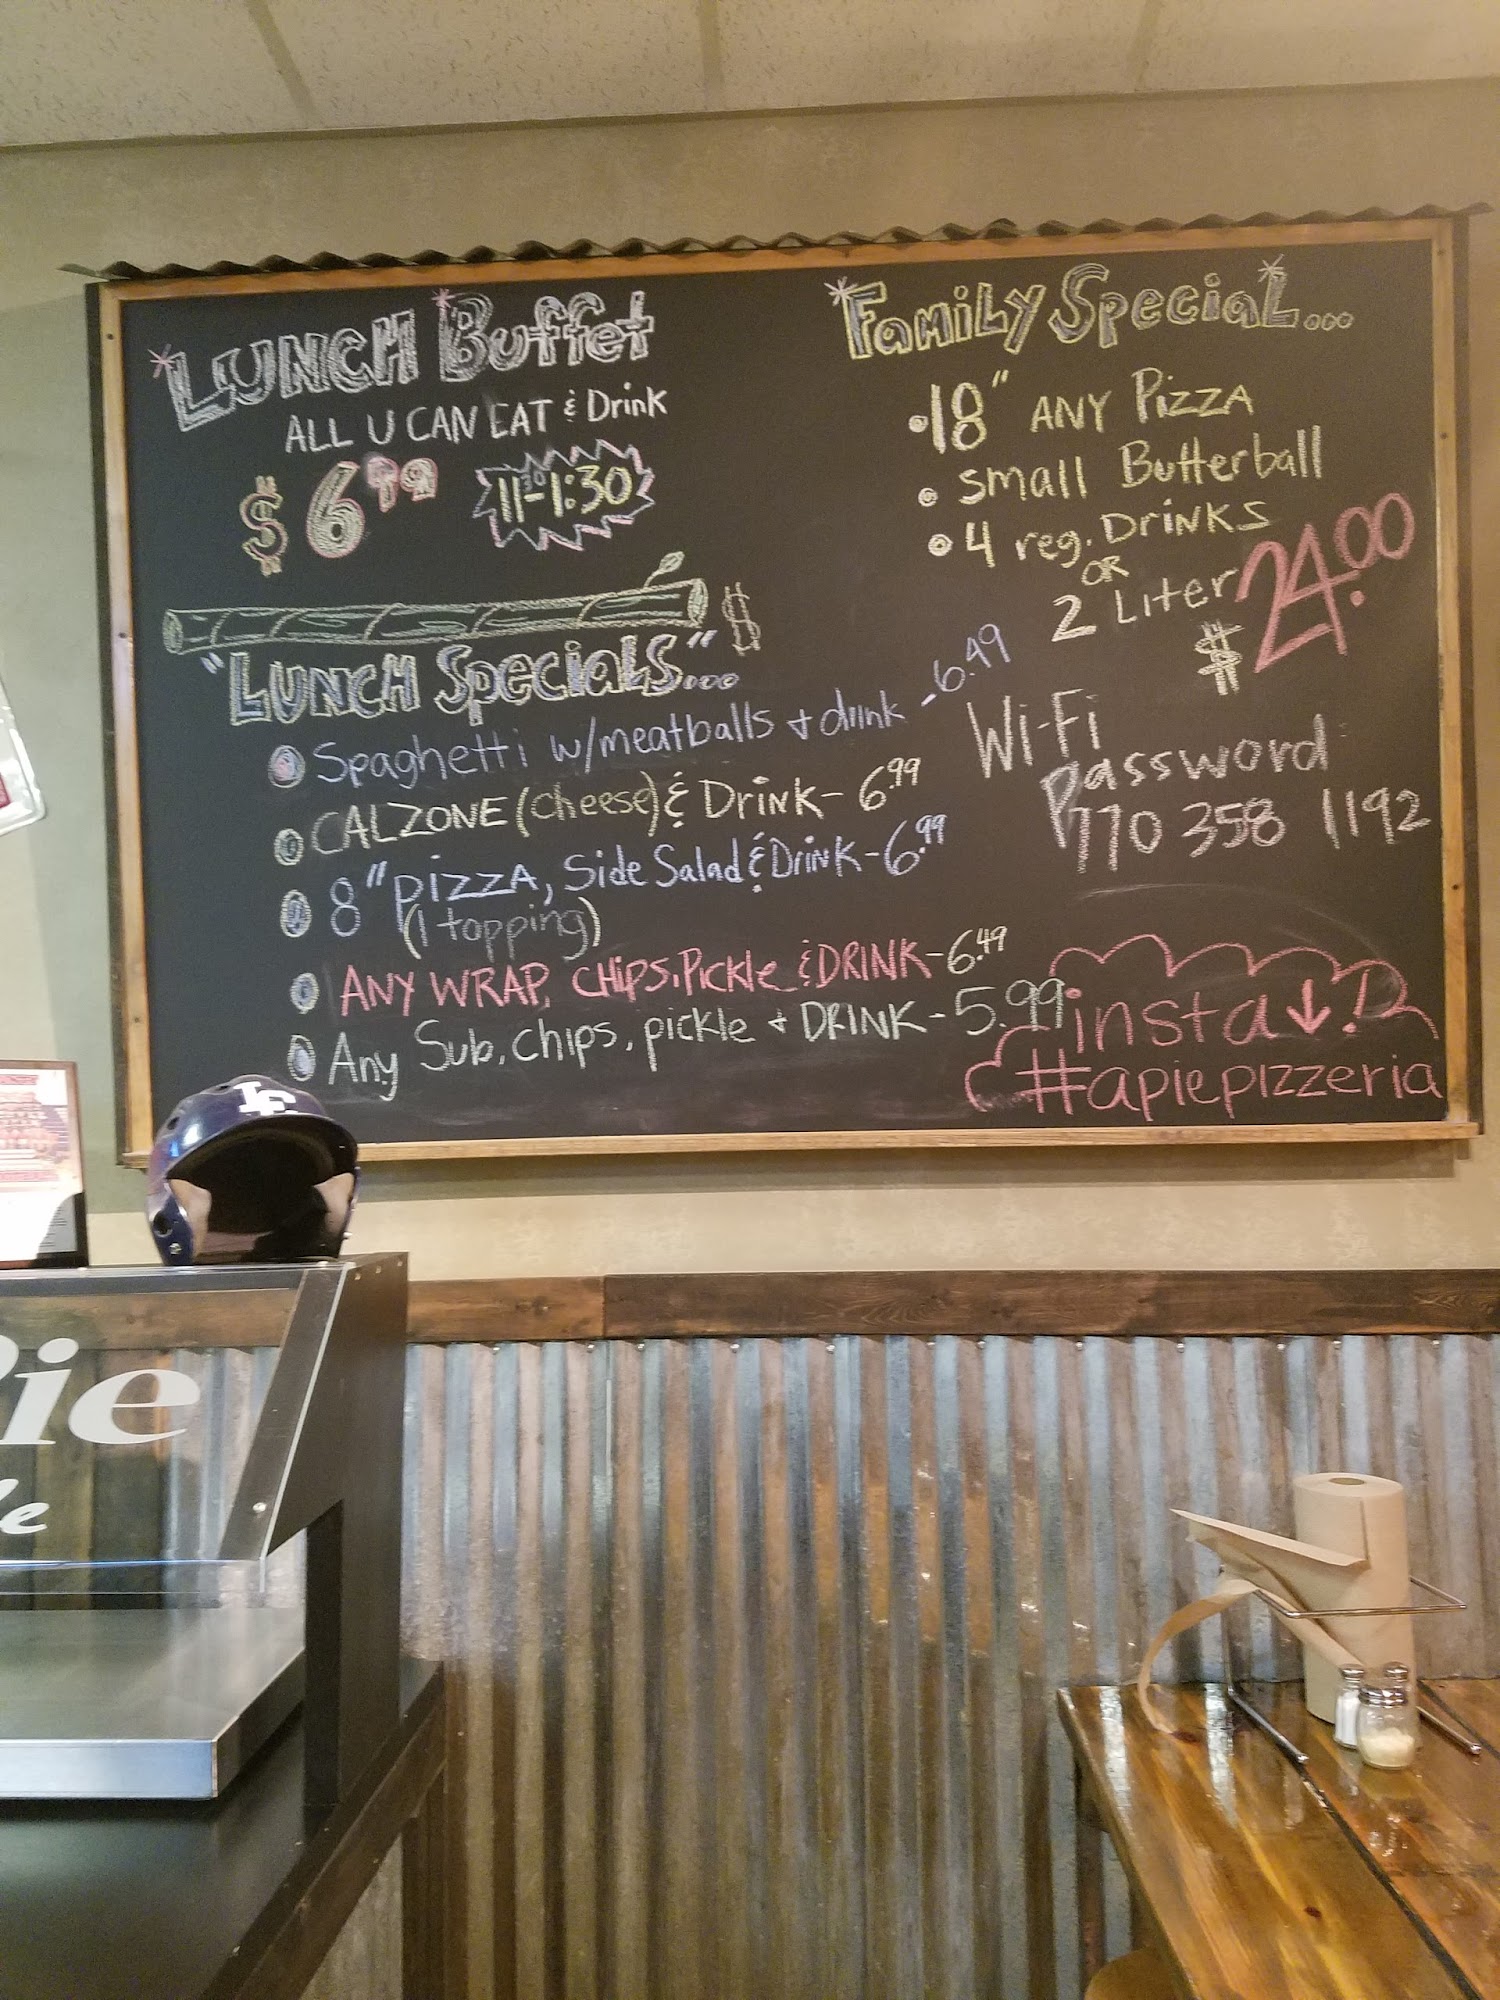 *LUNCH *Buffet
ALL U CAN EAT & Drink
$6.99 11:30-1:30
"LUNCH SpeciaLS"... $
Spaghetti w/meatballs + drink - 6.49
CALZONE (cheese) & Drink - 6.99
8" pizzA, Side Salad & Drink - 6.99
(1 topping)
ANY WRAP, CHIPS, Pickle & DRINK - 6.49
Any Sub, chips, pickle + DRINK - 5.99
*FamiLy SpeciaL...
•18" ANY PizzA
small Butterball
4 reg. DriNKS
OR
2 Liter
$24.00
Wi-Fi
Password
770 358 1192
insta↓!
#apiepizzeria
LF
Pie